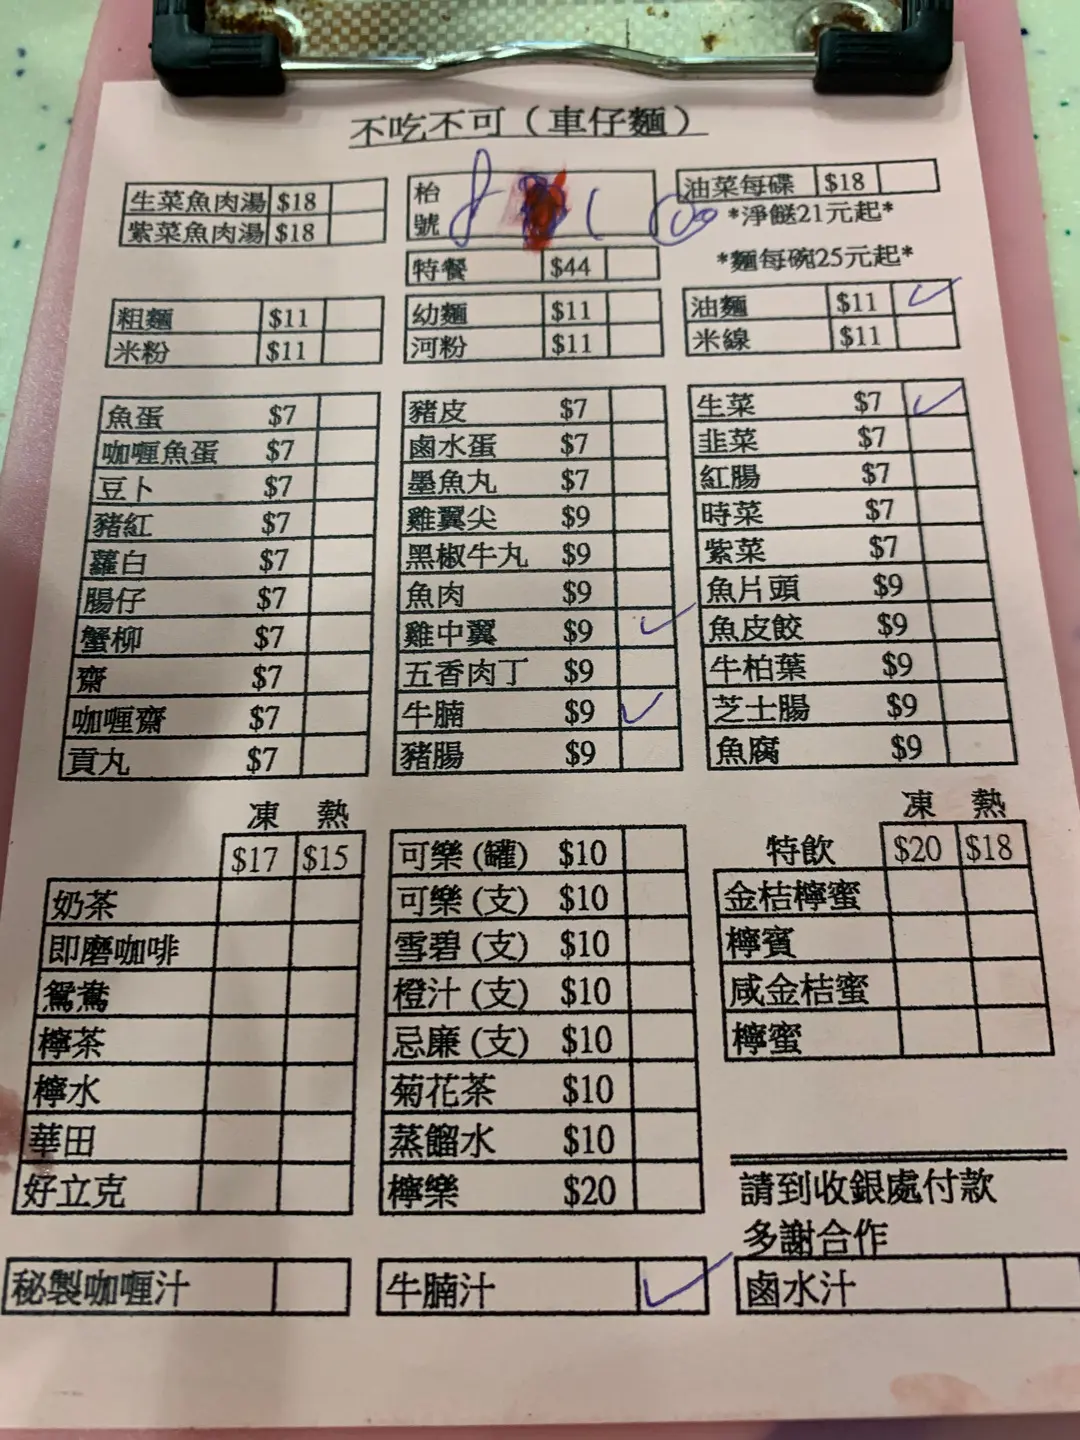 不吃不可（車仔麵）
生菜魚肉湯 $18
紫菜魚肉湯 $18
枱號
油菜每碟 $18
*淨餸21元起*
特餐 $44
*麵每碗25元起*
粗麵 $11
米粉 $11
幼麵 $11
河粉 $11
油麵 $11 ✓
米線 $11
魚蛋 $7
咖喱魚蛋 $7
豆卜 $7
豬紅 $7
蘿白 $7
腸仔 $7
蟹柳 $7
齋 $7
咖喱齋 $7
貢丸 $7
豬皮 $7
鹵水蛋 $7
墨魚丸 $7
雞翼尖 $9
黑椒牛丸 $9
魚肉 $9
雞中翼 $9 ✓
五香肉丁 $9
牛腩 $9 ✓
豬腸 $9
生菜 $7 ✓
韭菜 $7
紅腸 $7
時菜 $7
紫菜 $7
魚片頭 $9
魚皮餃 $9
牛柏葉 $9
芝士腸 $9
魚腐 $9
凍 熱
$17 $15
奶茶
即磨咖啡
鴛鴦
檸茶
檸水
華田
好立克
可樂 (罐) $10
可樂 (支) $10
雪碧 (支) $10
橙汁 (支) $10
忌廉 (支) $10
菊花茶 $10
蒸餾水 $10
檸樂 $20
凍 熱
特飲 $20 $18
金桔檸蜜
檸賓
咸金桔蜜
檸蜜
請到收銀處付款
多謝合作
秘製咖喱汁
牛腩汁 ✓
鹵水汁